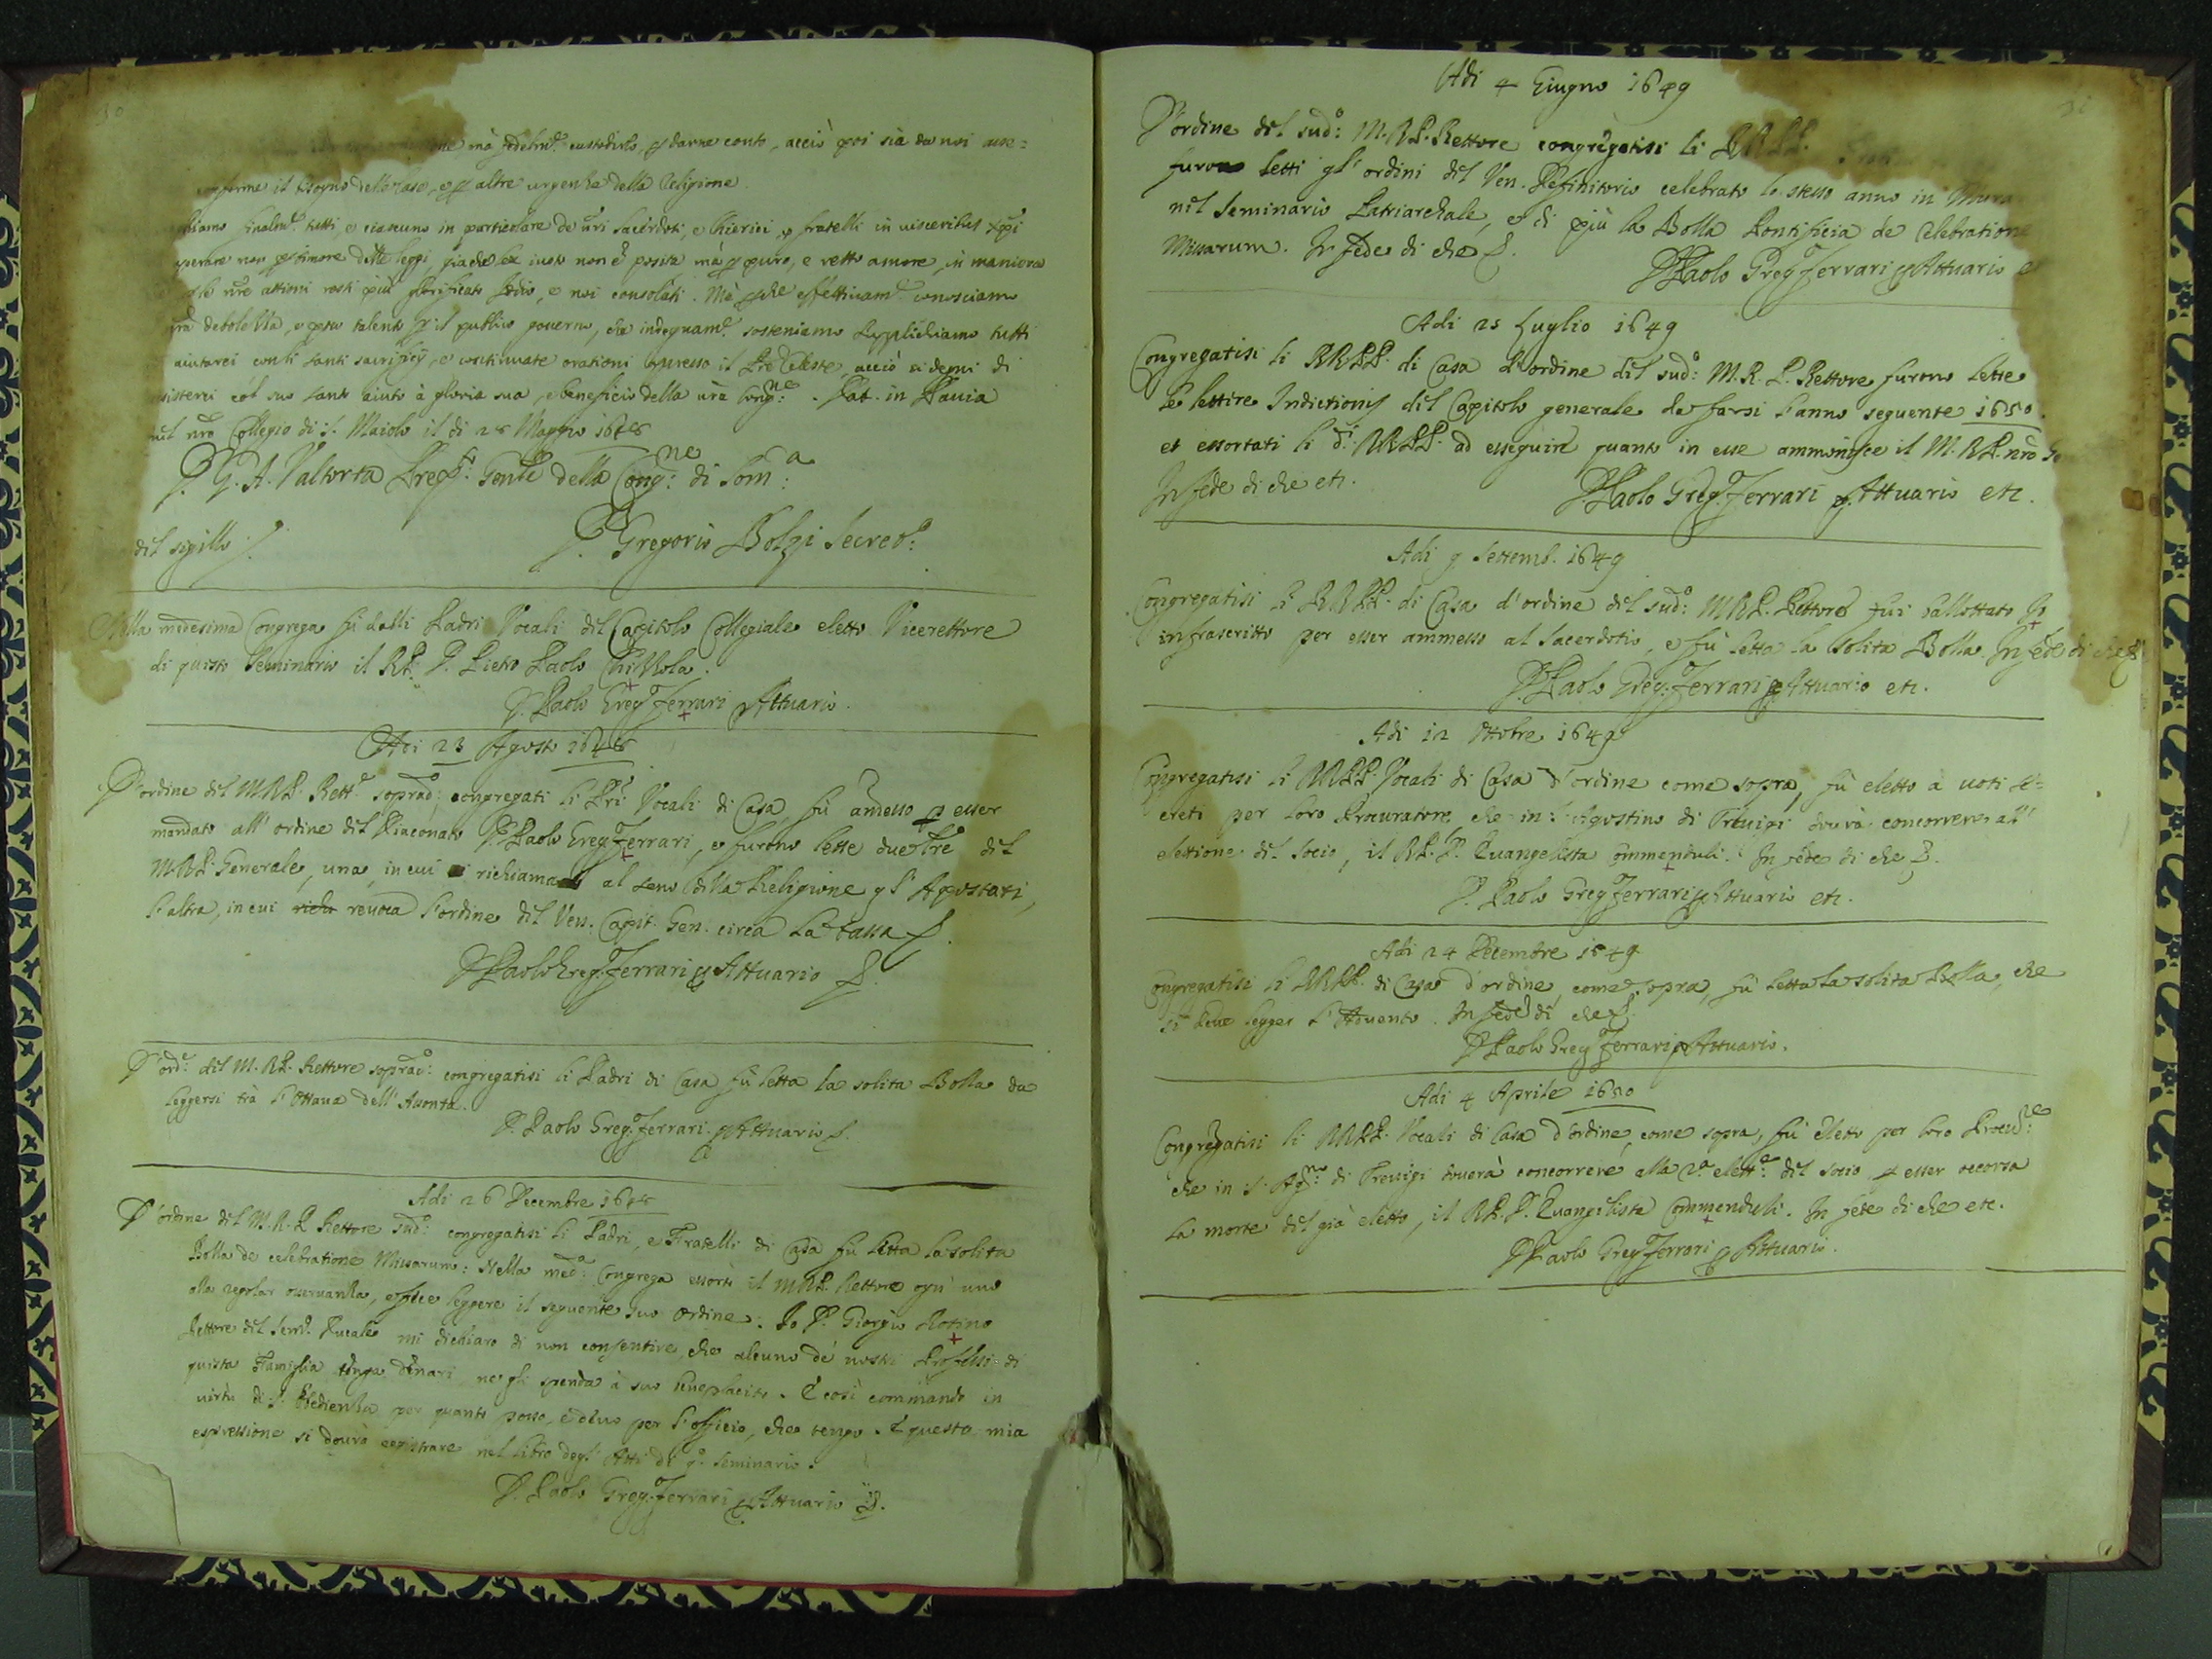 mà fedelmte custodirlo, p darne conto, acciò poi sia da noi
conforme il bisogno delle Case, e p altre urgenze della Religione.
finalmte tutti, e ciascuno in particolare de nri Sacerdoti, e Chierici, e fratelli in visceribus Xpi
operare non p timore delle leggi, giache lex iusto non è posita mà p puro, e retto amore, in maniera
nre attioni resti più glorificato Iddio, e noi consolati. Mà pche effettivamte conosciamo
nra debolezza, e poco talento p il publico governo, che indegnamte sosteniamo supplichiamo tutti
aiutarci con li santi sacrificij, e continuate orationi appresso il Pre Celeste, acciò si degni di
assisterci col suo santo aiuto à gloria sua, e beneficio della nra Congne. Dat. in Pavia
nel nro Collegio di S. Maiolo il di 28 Maggio 1648
D. G. A. Valtorta Prepto Gente della Congne di Soma:
del sigillo
D. Gregorio Bolzi Secreo:
Nella medesima Congrega fù dalli Padri Vocali del Capitolo Collegiale eletto Vicerettore
di questo Seminario il RP. D. Pietro Paolo
D. Paolo Greg. Ferrari Attuario.
Adi 23 Agosto 1648
D'ordine del M.R.P. Rette soprado: congregati li Pri Vocali di Casa, fù amesso p esser
mandato all' ordine del Diaconato D. Paolo Greg. Ferrari, e furono lette due lre del
M.R.P. Generale, una, in cui si richiama al seno della Religione gl' Apostati,
l'altra, in cui riché revoca l'ordine del Ven. Capit. Gen. circa la tassa
D. Paolo Greg. Ferrari Attuario
D'orde del M.R.P. Rettore soprado: congregatisi li Padri di Casa fù letta la solita Bolla da
leggersi trà l'Ottava dell' Avento.
D. Paolo Greg. Ferrari Attuario
Adi 26 Decembre 1648
D'ordine del M.R.P. Rettore sudo: congregatisi li Padri, e Fratelli di Casa fu letta la solita
Bolla de celebratione Missarum: Nella meda: Congrega essortò il M.R.P. Rettore ogn' uno
alla regolar osservanza, e fece leggere il seguente suo ordine: Io D. Giorgio
Rettore del Semo Ducale mi dichiaro di non consentire, che alcuno de' nostri Professi di
questa Famiglia tenga denari, ne gli spenda à suo beneplacito. E così commando in
virtù di S. Obedienza per quanto posso, e devo per l'officio, che tengo. E questa mia
espressione si dovrà registrare nel libro degl' Atti di qo Seminario.
D. Paolo Greg. Ferrari Attuario
Adi 4 Giugno 1649
D'ordine del sudo: M.R.P. Rettore congregatisi li RR.PP.
furono letti gl' ordini del Ven. Definitorio celebrato lo stesso anno in
nel Seminario Patriarchale, e di più la Bolla Pontificia de Celebratione
Missarum. In fede di che
D. Paolo Greg. Ferrari Attuario
Adi 25 Luglio 1649
Congregatisi li RR.PP. di Casa d'ordine del sudo: M.R.P. Rettore furono lette
le lettere Indictionis del Capitolo generale da farsi l'anno seguente 1650.
et essortati li di RR.PP. ad esseguire quanto in esse ammonisce il M.R.P. nro
In fede di che etc.
D. Paolo Greg. Ferrari Attuario etc.
Adi 9 Settemb. 1649
Congregatisi li RR.PP. di Casa d'ordine del sudo: M.R.P. Rettore fui ballottato Io
infrascritto per esser ammesso al Sacerdotio, e fù letta la solita Bolla. In fede di che
D. Paolo Greg. Ferrari Attuario etc.
Adi 12 Ottobre 1649
Congregatisi li RR.PP. Vocali di Casa d'ordine come sopra, fù eletto à voti se=
creti per loro Procuratore, che in S. Agostino di Trevigi dovrà concorrere all'
elettione del Socio, il R.P. D. Evangelista Commenduli. In fede di che
D. Paolo Greg. Ferrari Attuario etc.
Adi 24 Decembre 1649
Congregatisi li RR.PP. di Casa d'ordine, come sopra, fù letta la solita Bolla, che
si deve legger l'Advento. In fede di che
D. Paolo Greg. Ferrari Attuario.
Adi 4 Aprile 1650
Congregatisi li RR.PP. Vocali di Casa d'ordine, come sopra, fù eletto per loro Procure:
che in S. Agno: di Trevigi doverà concorrere alla 2a elette del socio, p esser occorsa
la morte del già eletto, il R.P. D. Evangelista Commenduli. In fede di che etc.
D. Paolo Greg. Ferrari Attuario.